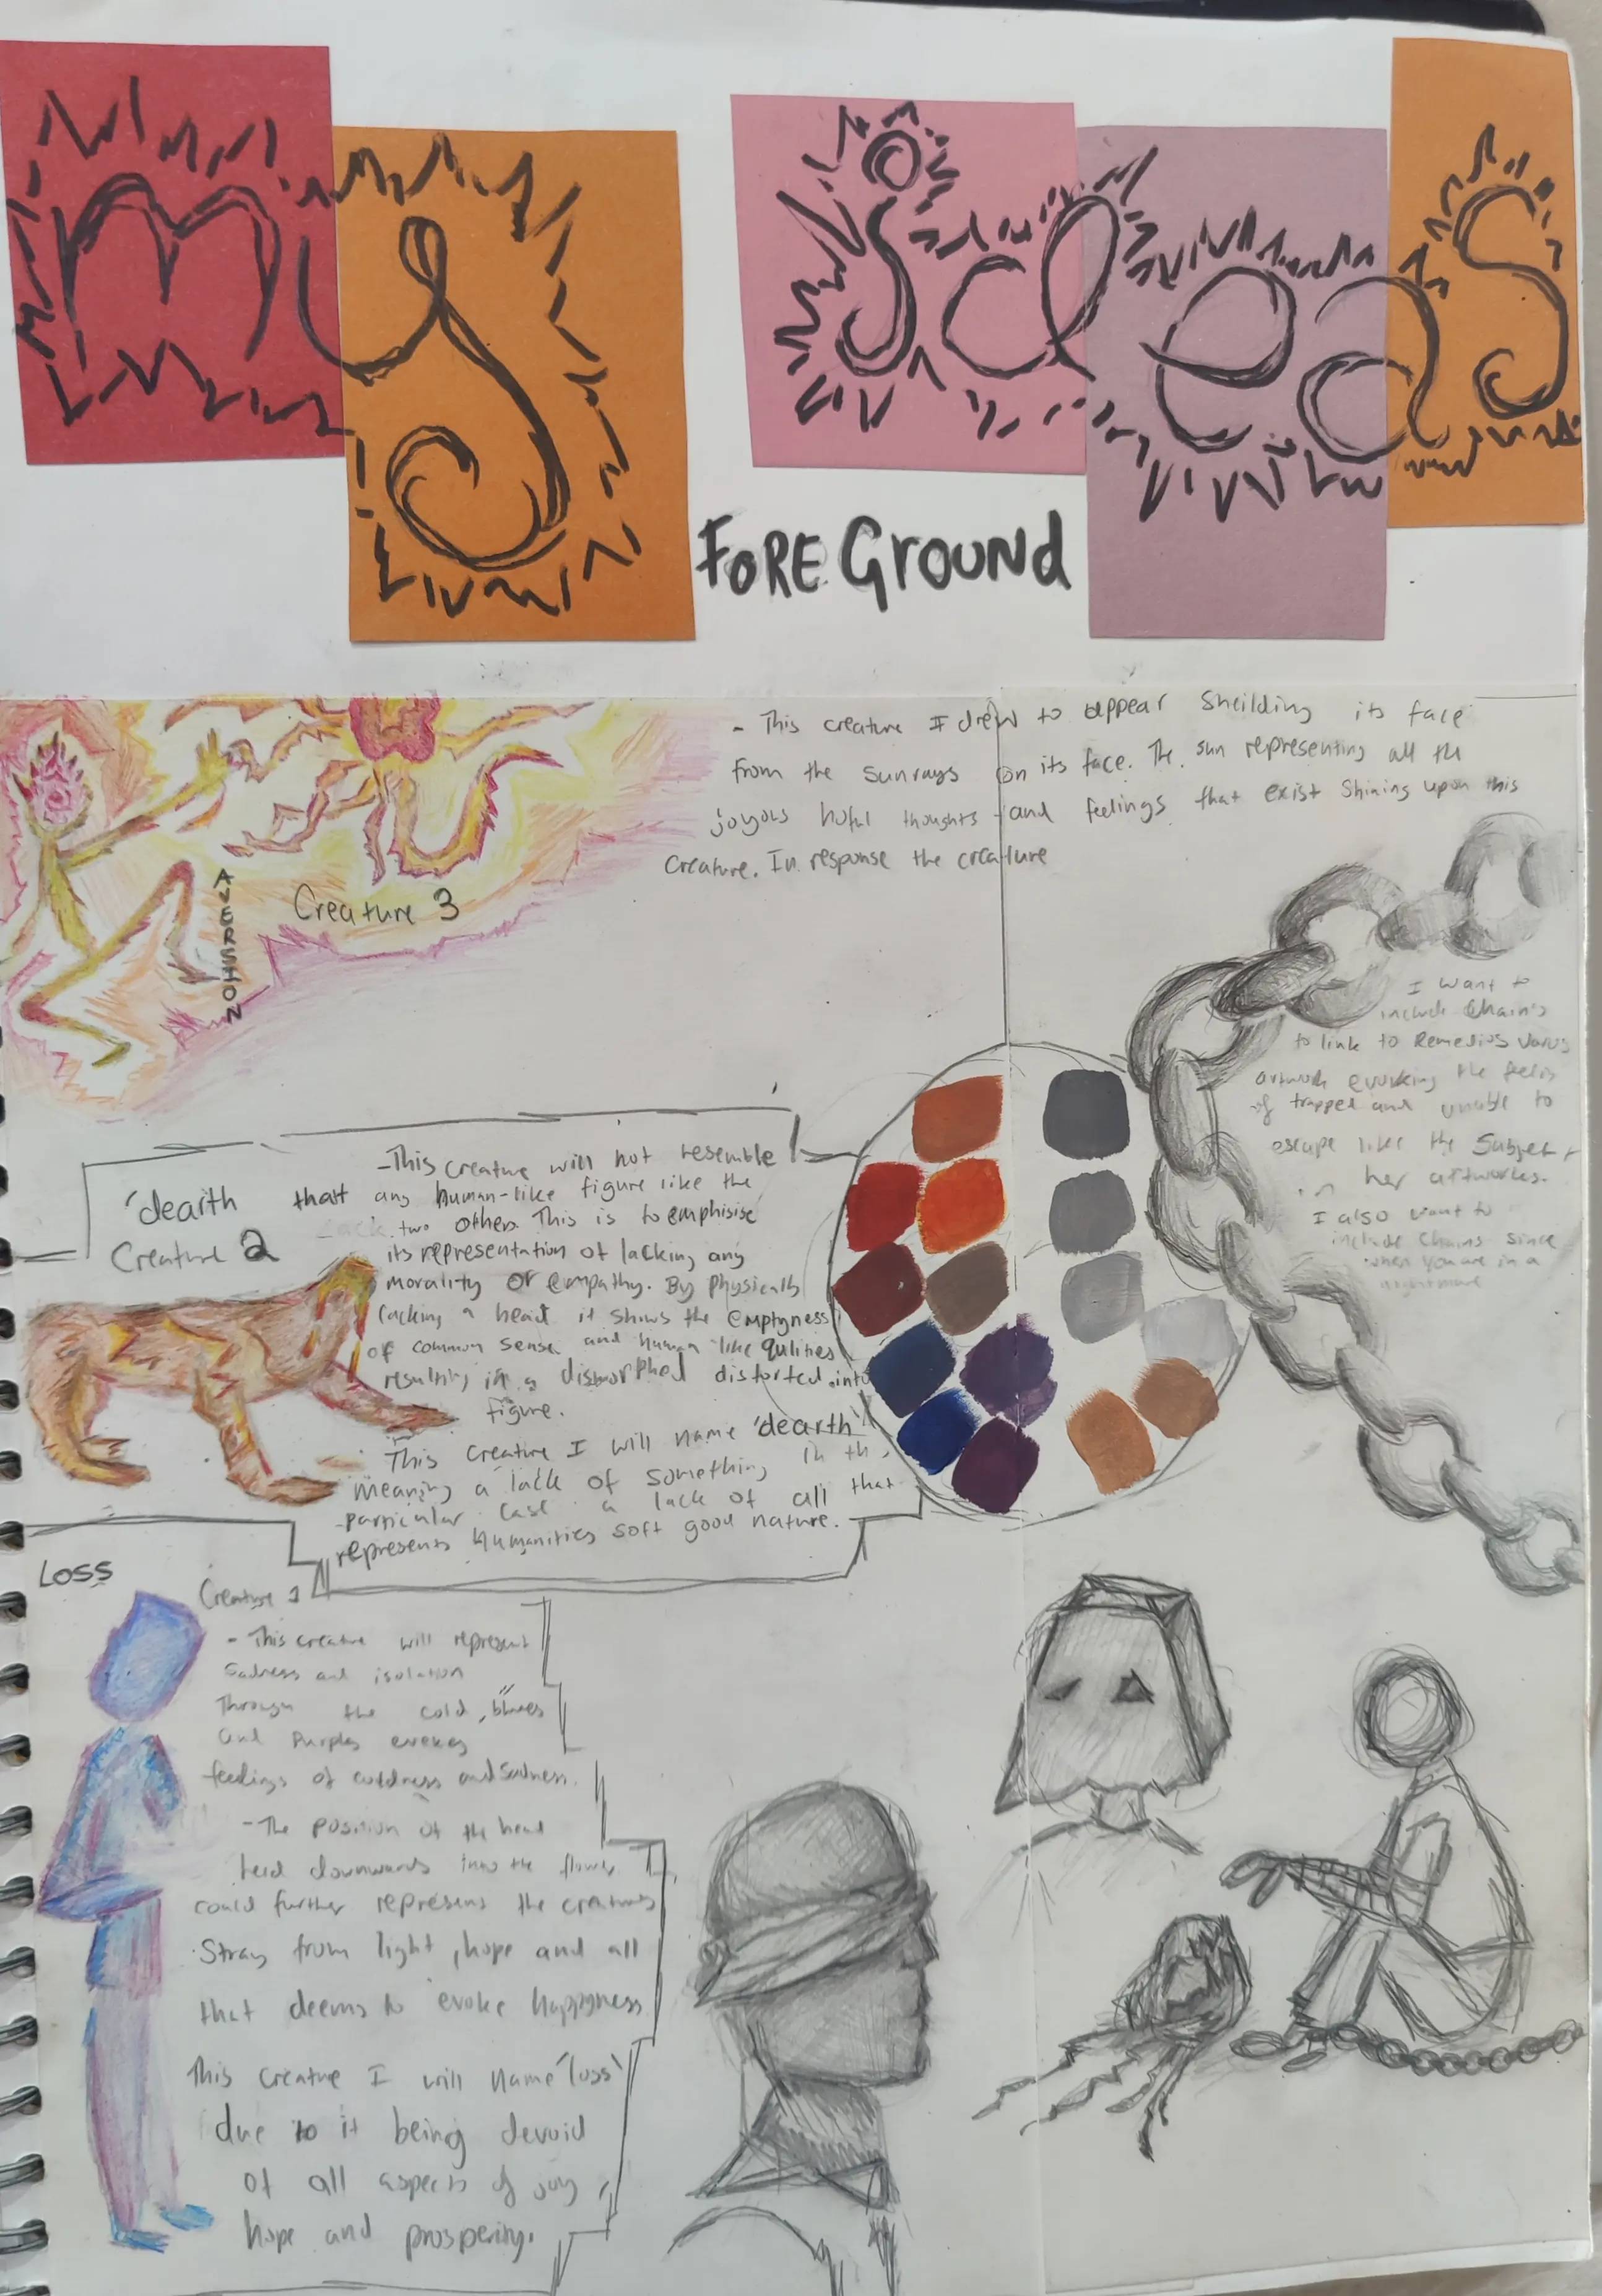 my ideas
FOREGROUND
- This creature I drew to appear sheilding its face
from the sunrays on its face. The sun representing all the
joyous hoful thoughts and feelings that exist shining upon this
creature. In response the creature
AVERSION
Creature 3
I want to
include Chain's
to link to Remedios Varos
artwork evoking the feelis
of trapped and unable to
escape like the subject
in her artworks.
I also want to
include chains since
when you are in a
nightmare
'dearth
Creature 2
-This creature will not resemble
that any human-like figure like the
lack two others This is to emphisise
its representation of lacking any
morality or empathy. By physically
lacking a head it shows the emptyness
of common sense and human like qulities
resulting in a dismorphed distorted into
figure.
This creature I will name 'dearth'
meaning a lack of something in th
particular case a lack of all that
represents humanities soft good nature.
LOSS
Creature 1
- This creature will represent
sadness and isolation
Through the cold, blues
and purples evokes
feelings of coldness and sadness.
- The position of the head
held downwards into the
could further represens the creatures
stray from light, hope and all
that deems to evoke happyness
This creature I will name 'loss'
due to it being devoid
of all aspects of joy,
hope and prosperity.